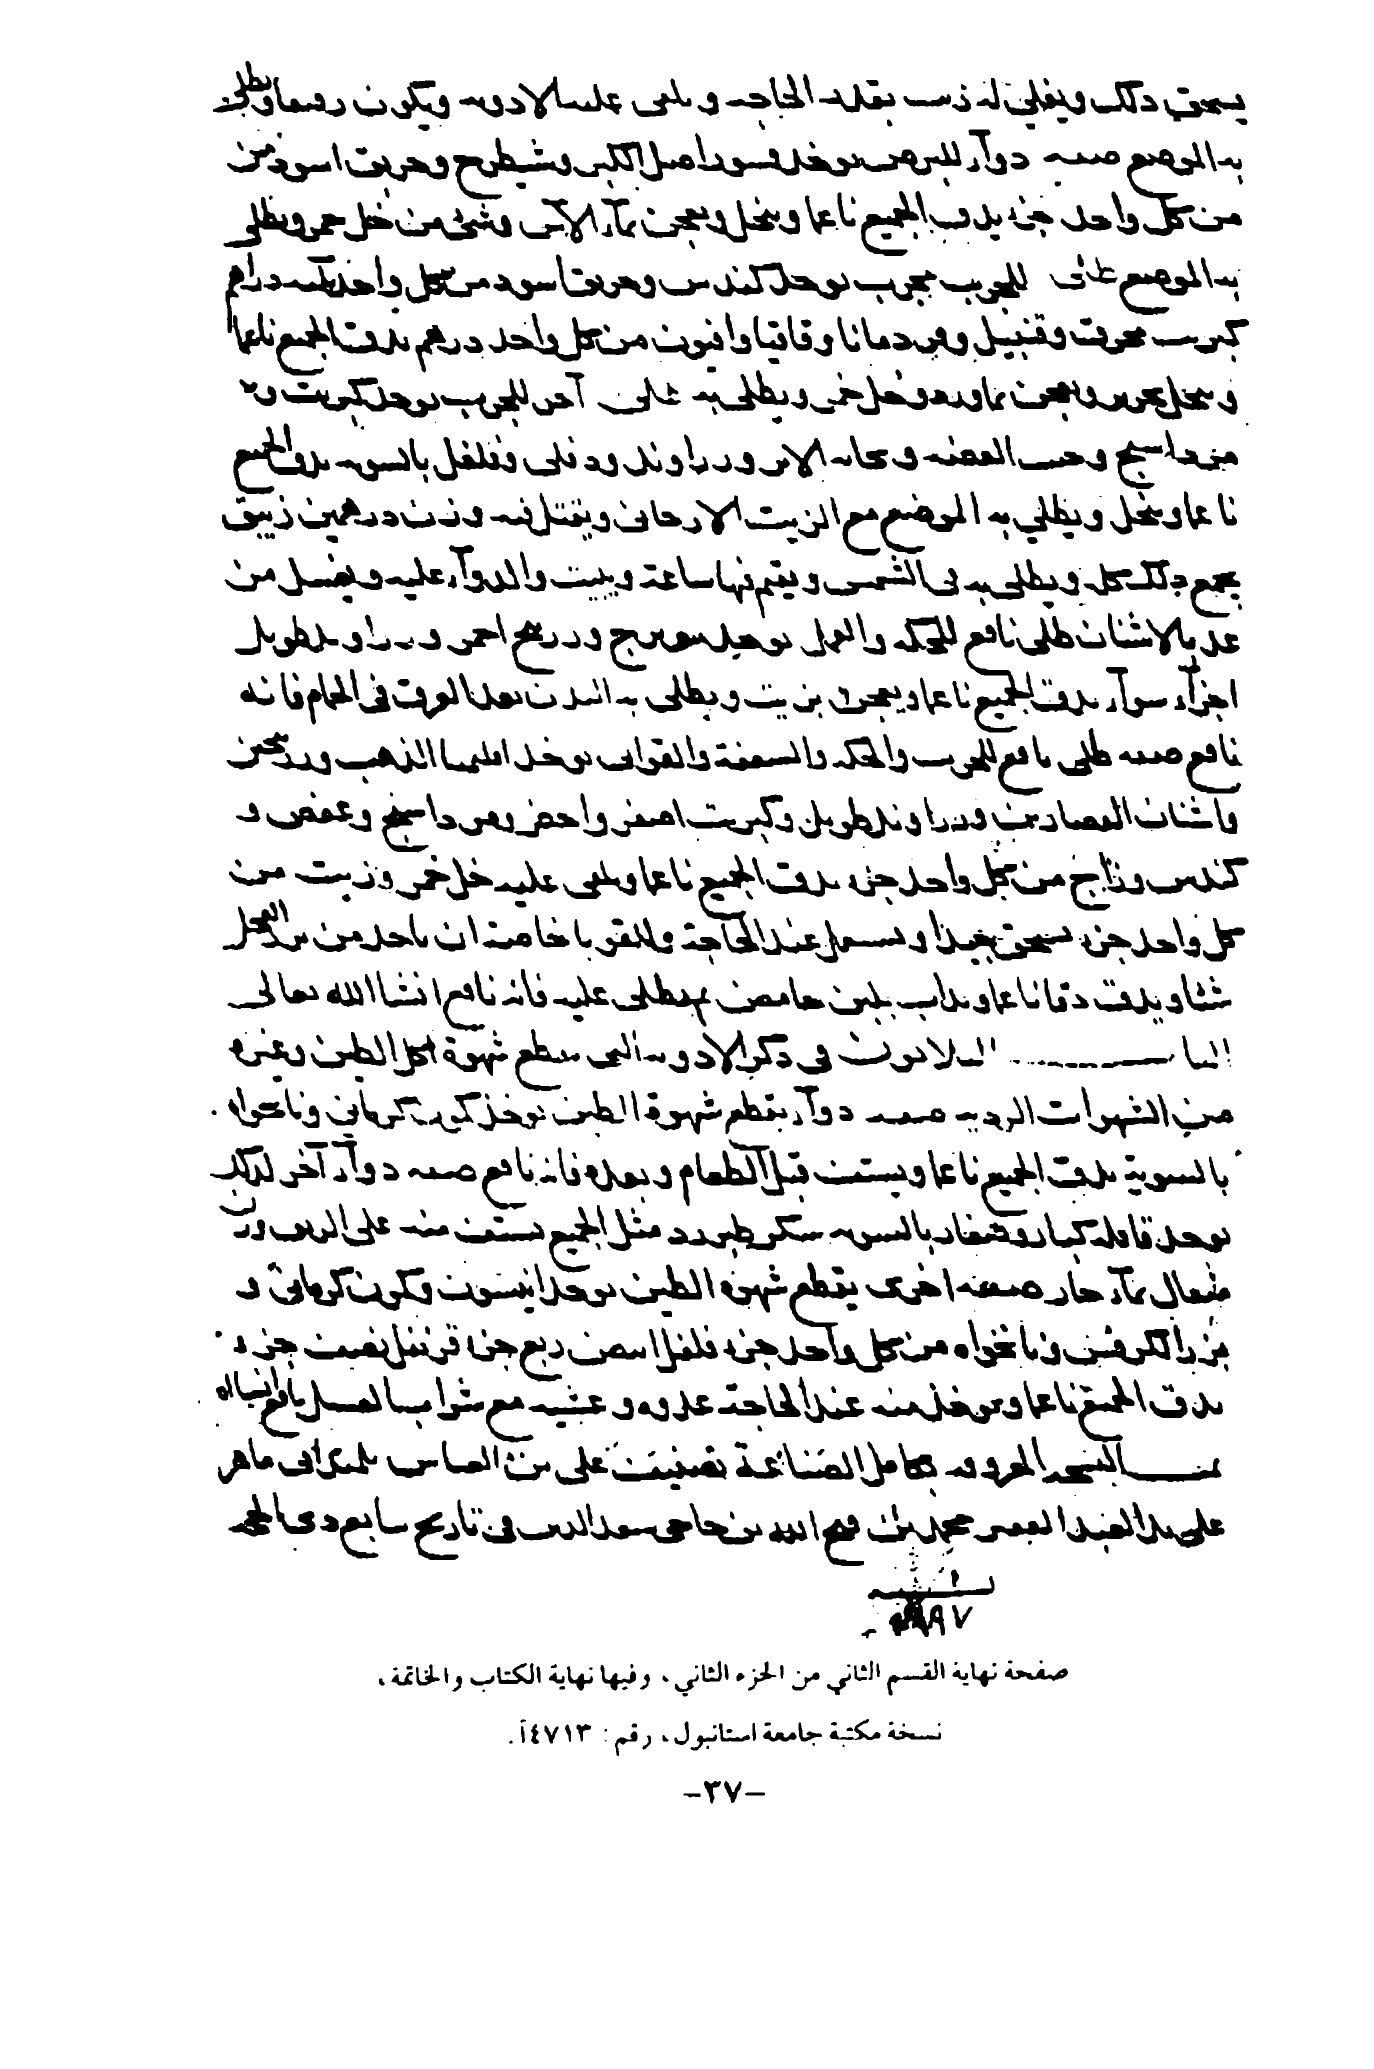 يسحق ذلك ويغلي له زيت بقدر الحاجه ويلقى عليه الادويه ويكون رقيقا ويطلى
به الموضع صفه دوآء للبرص يوخذ قشور اصل الكبر وشيطرج وخربق اسود من
من كل واحد جزء يدق الجميع ناعما وينخل ويعجن بمآء الآس وشئ من خل خمر ويطلى
به الموضع للجرب مجرب يوخذ كندس وخربق اسود من كل واحد ثلثه دراهم
كبريت محرق وقنبيل وقردمانا وقاقيا وافيون من كل واحد درهم يدق الجميع ناعما
وينخل بحرير ويعجن بماورد وخل خمر ويطلى به طلى آخر للجرب يوخذ كبريت و
مرداسنج وخبث الفضه وزراوند ودفلى وفلفل بالسويه يدق الجميع
ناعما وينخل ويطلي به الموضع مع الزيت ويقتل فيه وزن درهمين زيبق
يجمع ذلك كله ويطلى به فى الشمس ويقيم فيها ساعة ويبيت والدوآء عليه ويغسل من
غد بالاشنان طلى نافع للحكه والقمل يوخذ ميويزج وزرنيخ احمر وزراوند طويل
اجزآء سوآء يدق الجميع ناعما ويعجن بزيت ويطلى به البدن بعد العرق فى الحمام فانه
نافع صفه طلى نافع للجرب والحكه والسعفة والقوابى يوخذ اقليميا الذهب
واشنان القصارين وزراوند طويل وكبريت اصفر واخضر ومرداسنج وعفص و
كندس وزاج من كل واحد جزء يدق الجميع ناعما ويلقى عليه خل خمر وزيت من
كل واحد جزء يسحق جيدا ويستعمل عند الحاجة وللقوبا خاصة ان ياخذ من بزر الفجل
شئا ويدق دقا ناعما ويداب بلبن حامض ثم يطلى عليه فانه نافع انشا الله تعالى
البا ب الثلاثون فى ذكر الادويه التى تقطع شهوة اكل الطين وغيره
من الشهوات الرديه صفه دوآء يقطع شهوة الطين يوخذ كمون كرمانى ونانخواه
بالسوية يدق الجميع ناعما ويستف قبل الطعام وبعده فانه نافع صفه دوآء آخر لذلك
يوخذ قاقله كبار وصغار بالسويه سكر طبرزد مثل الجميع يستف منه على الريق وزن
مثقال بمآء حار صفه اخرى يقطع شهوة الطين يوخذ انيسون وكمون كرمانى و
بزر الكرفس ونانخواه من كل واحد جزء فلفل ابيض ربع جزء قرنفل نصف جزء
يدق الجميع ناعما ويوخذ منه عند الحاجة غدوه وعشيه مع شراب العسل نافع انشاالله
تمت النسخه المعروفه بكامل الصناعة تصنيف على بن العباس تلميذ ابى ماهر
على يد العبد الفقير محمد بن فتح الله بن حاجى سعد الدين فى تاريخ سابع ذى الحجه
صفحة نهاية القسم الثاني من الجزء الثاني، وفيها نهاية الكتاب والخاتمة،
نسخة مكتبة جامعة استانبول، رقم: ٤٧١٣أ.
-٣٧-